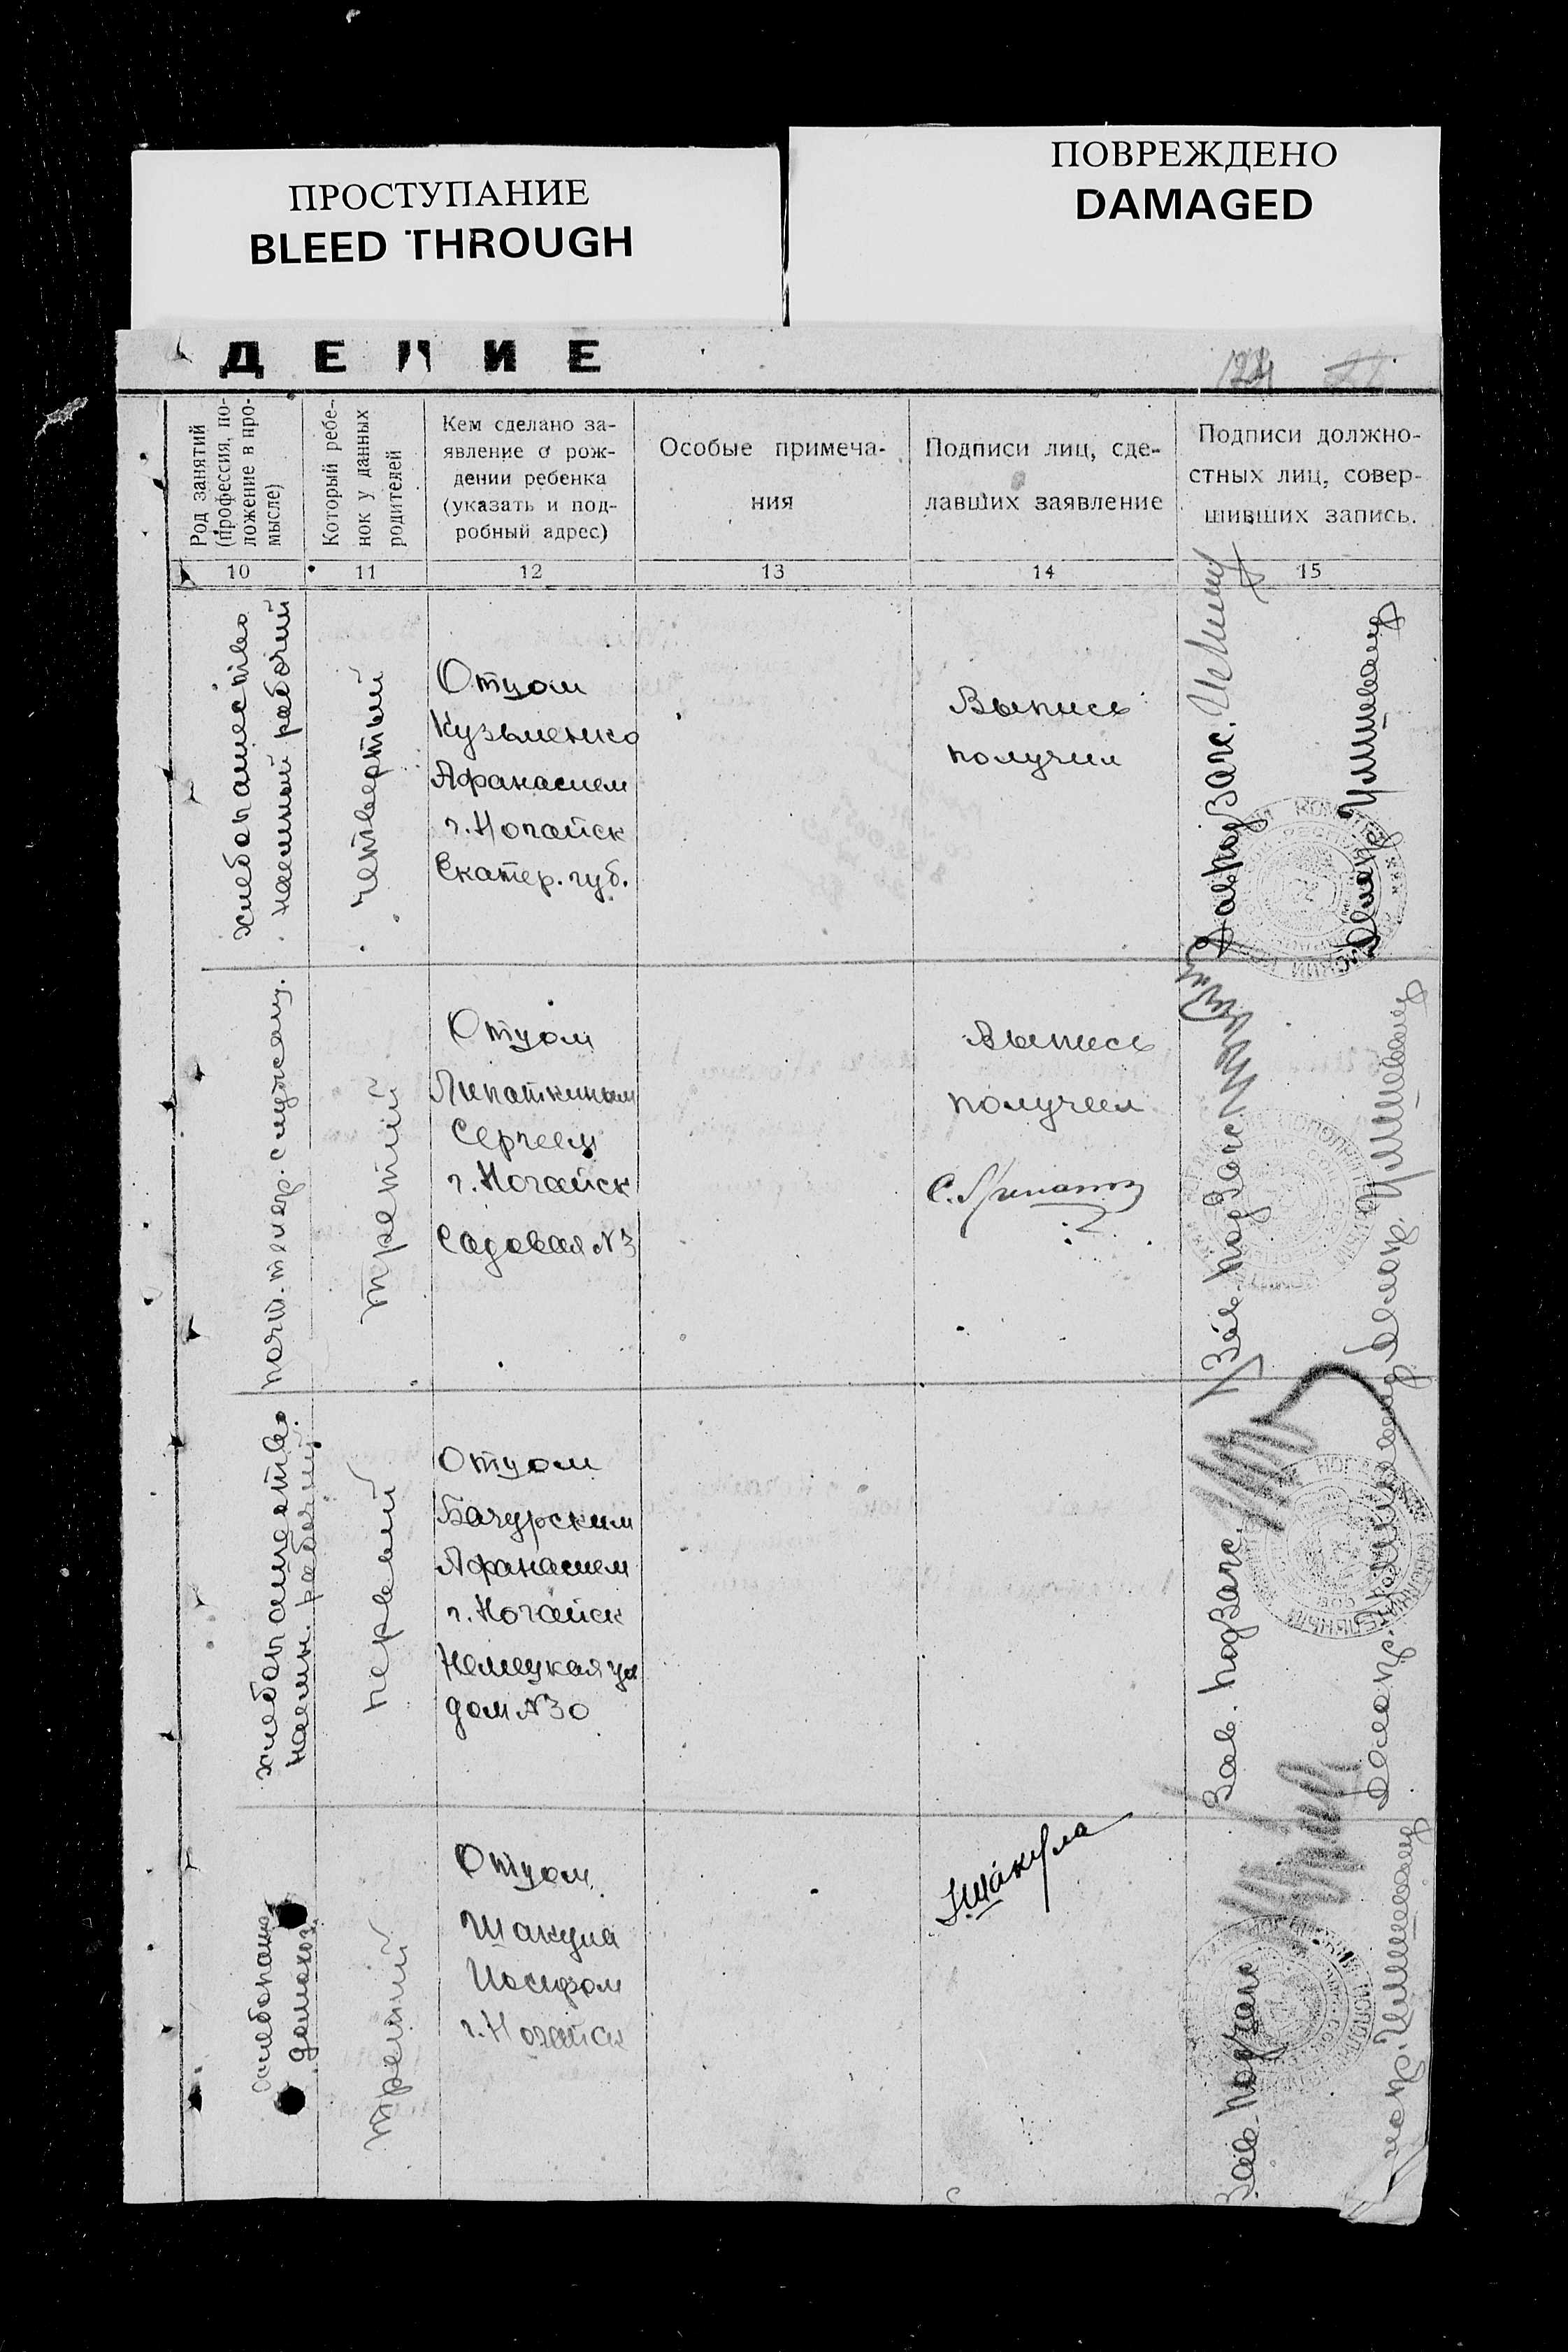 ПРОСТУПАНИЕ
BLEED THROUGH
ПОВРЕЖДЕНО
DAMAGED
ДЕНИЕ
124
Род занятий
(профессия, по-
ложение в про-
мысле)
Который ребе-
нок у данных
родителей
Кем сделано за-
явление о рож-
дении ребенка
(указать и под-
робный адрес)
Особые примеча-
ния
Подписи лиц, сде-
лавших заявление
Подписи должно-
стных лиц, совер-
шивших запись.
10
11
12
13
14
15
хлебопашество
наемный рабочий
четвертый
Отцом
Кузьменко
Афанасием
г. Ногайск
Екатер. губ.
Выпись
получил
Зав. подЗагс.
Делопр.
почт. телер. служащ.
третий
Отцом
Липаткиным
Сергеем
г. Ногайск
Садовая №3
Выпись
получил
С. Липатк
Зав. подЗагс
Делопр.
хлебопашество
наемн. рабочий
первый
Отцом
Бачурским
Афанасием
г. Ногайск
Немецкая ул
дом №30
Зав. подЗагс.
Делопр.
хлебопаш
домохоз
третий
Отцом
Шакула
Иосифом
г. Ногайск
Шакула
Зав. подЗагс